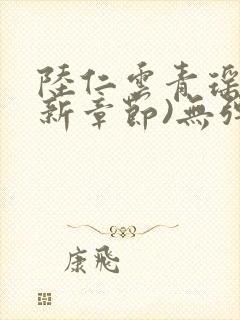 陸仁雲青瑶
新章節)無彈
康飛